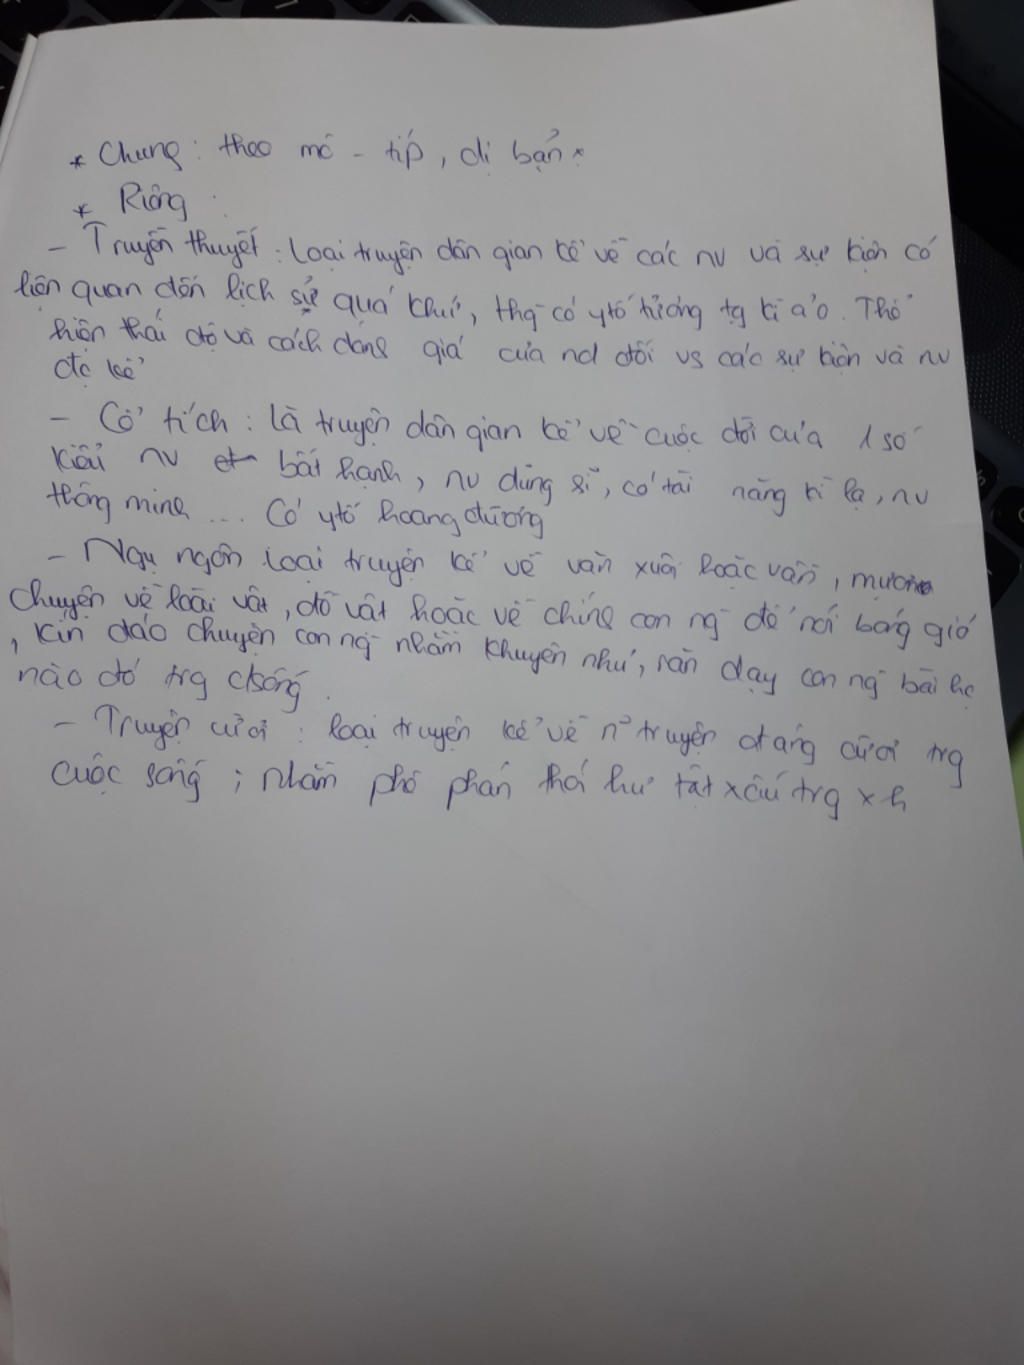 * Chung : theo mô - típ, dị bản.
* Riêng :
- Truyền thuyết : loại truyện dân gian kể về các nv và sự kiện có
liên quan đến lịch sử quá khứ, thg có ytố tưởng tg kì ảo. Thể
hiện thái độ và cách đánh giá của nd đối vs các sự kiện và nv
đc kể
- Cổ tích : là truyện dân gian kể về cuộc đời của 1 số
kiểu nv bất hạnh, nv dũng sĩ, có tài năng kì lạ, nv
thông minh ... Có ytố hoang đường
- Ngụ ngôn loại truyện kể về văn xuôi hoặc vần, mượn
chuyện về loài vật, đồ vật hoặc về chính con ng để nói bóng gió
, kín đáo chuyện con ng nhằm khuyên nhủ, răn dạy con ng bài hc
nào đó trg csống.
- Truyện cười : loại truyện kể về n² truyện đáng cười trg
cuộc sống ; nhằm phê phán thói hư tật xấu trg xh